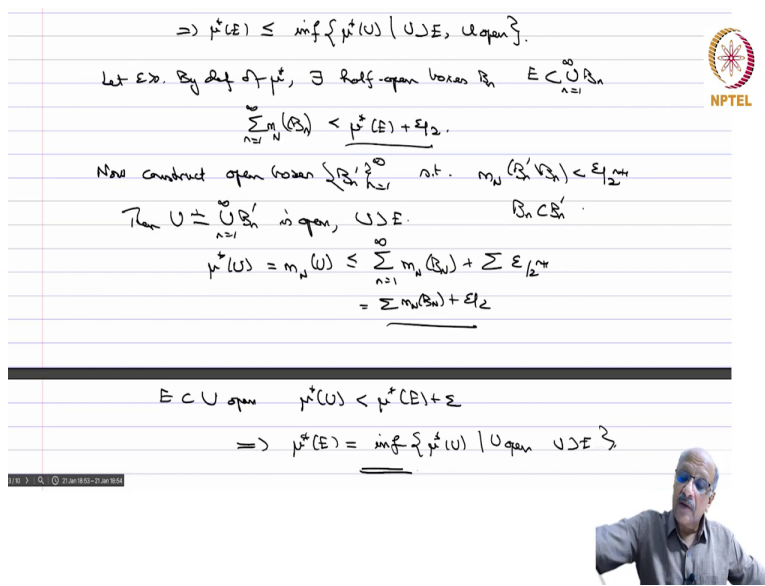 ⇒ μ*(E) ≤ inf{μ*(U) | U⊃E, U open}.
Let ε>0. By def of μ*, ∃ half-open boxes Bn E ⊂ ∪_{n=1}^∞ Bn
∑_{n=1}^∞ m_N(Bn) < μ*(E) + ε/2.
Now construct open boxes {Bn'}_{n=1}^∞ s.t. m_N(Bn'\Bn) < ε/2^{n+1}
Bn ⊂ Bn'.
Then U ≐ ∪_{n=1}^∞ Bn' is open, U⊃E.
μ*(U) = m_N(U) ≤ ∑_{n=1}^∞ m_N(B_N) + ∑ ε/2^{n+1}
= ∑ m_N(B_N) + ε/2
E ⊂ U open μ*(U) < μ*(E) + ε
⇒ μ*(E) = inf{μ*(U) | U open U⊃E}.
NPTEL
3/10 21 Jan 18:53 – 21 Jan 18:54